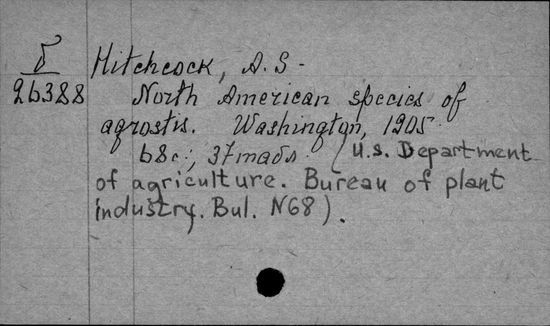 Hitchcock, A. S -
26388 North American species of
agrostis. Washington, 1905
68c., 37 mads (U.S. Department
of agriculture. Bureau of plant
industry. Bul. N68).